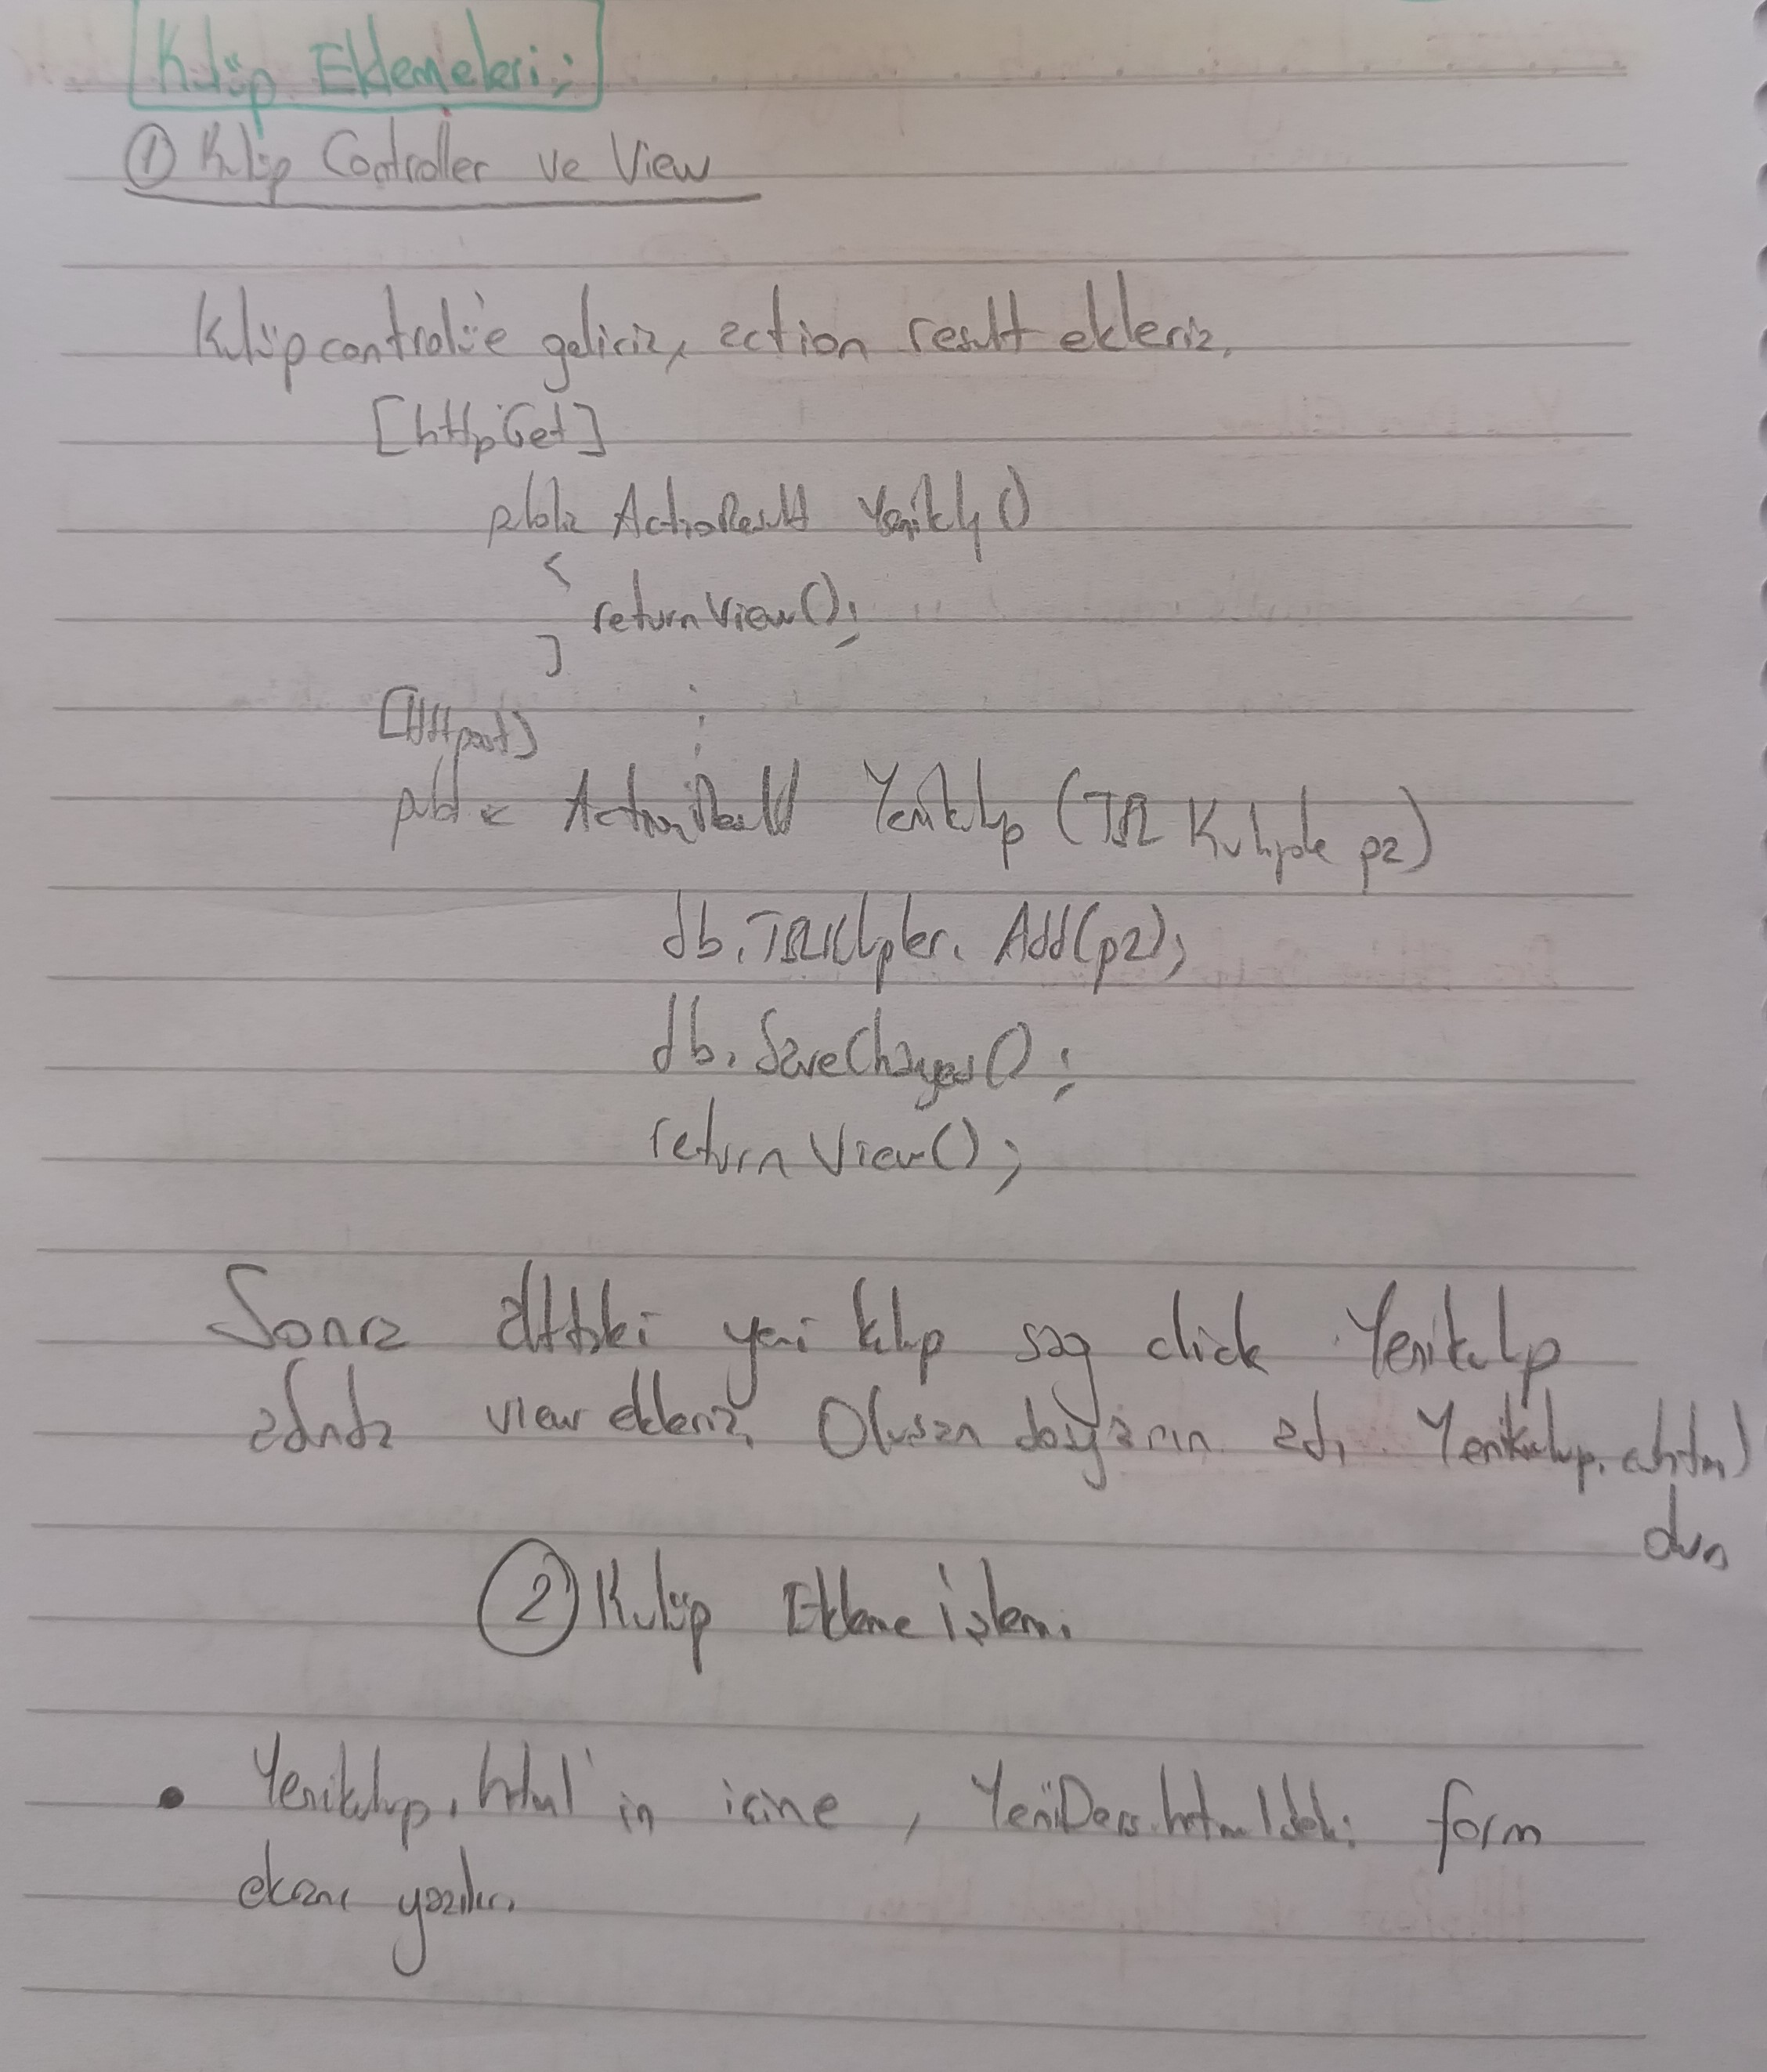 Kulüp Eklemeleri;
① Kulüp Controller ve View
Kulüpcontrolü'e geliriz, action result ekleriz.
[httpGet]
public ActionResult Yenikulp()
{
return View();
}
[Httppost]
public ActionResult Yenikulup (TBL Kulupler p2)
db.TBLKulupler.Add(p2);
db.SaveChanges();
return View();
Sonra alttaki yeni kulup sag click Yenikulup
adında view ekleriz. Olusan dosyanın adı Yenikulup.cshtml
olur
② Kulüp Ekleme işlemi
• Yenikulup.html'in icine, YeniDers.html'deki form
ekranı yazılır.